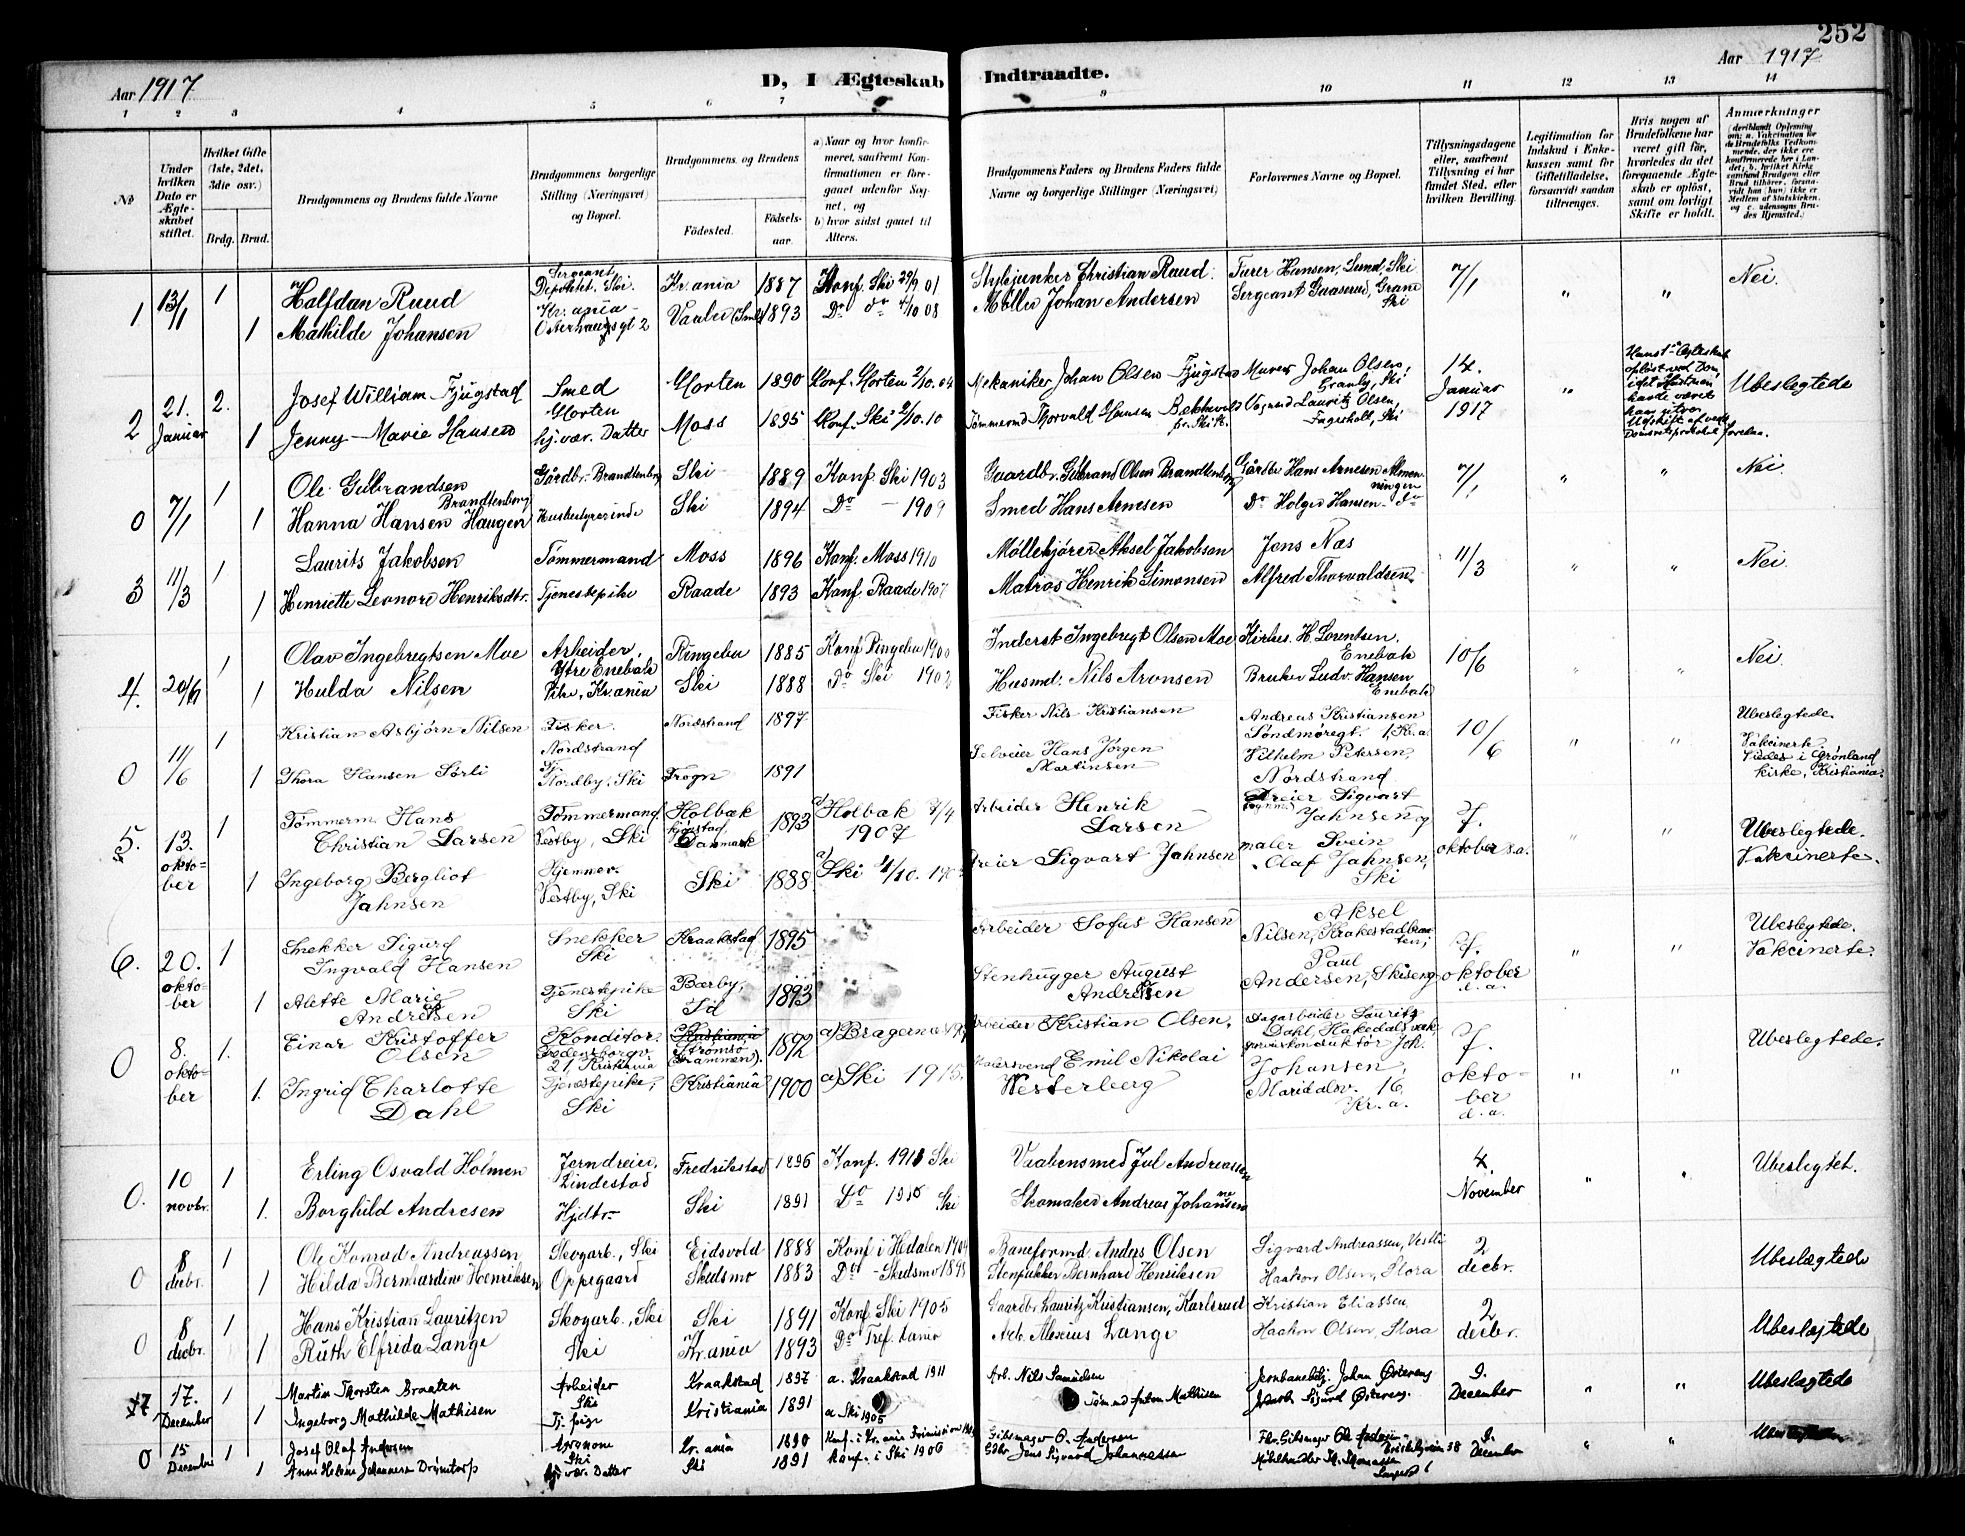 252
Aar 1917
D, I Ægteskab Indtraadte.
Aar 1917
1 2 3 4 5 6 7 9 10 11 12 13 14
№
Under hvilken Dato er Ægteskabet stiftet.
Hvilket Gifte (1ste, 2det, 3die osv.)
Brdg. Brud.
Brudgommens og Brudens fulde Navne
Brudgommens borgerlige Stilling (Næringsvei) og Bopæl.
Brudgommens og Brudens
Fødested. Fødselsaar.
a) Naar og hvor konfirmeret, saafremt Konfirmationen er foregaaet udenfor Sognet, og
b) hvor sidst gaaet til Alters.
Brudgommens Faders og Brudens Faders fulde Navne og borgerlige Stillinger (Næringsvei)
Forlovernes Navne og Bopæl.
Tillysningsdagene eller, saafremt Tillysning ei har fundet Sted, efter hvilken Bevilling.
Legitimation for Indskud i Enkekassen samt for Giftetilladelse, forsaavidt saadan tiltrænges.
Hvis nogen af Brudefolkene har været gift før, hvorledes da det foregaaende Ægteskab er opløst, samt om lovligt Skifte er holdt.
Anmærkninger
1 13/1 1 Halfdan Ruud Sergeant Depottet, Ski. Kr.ania 1887 Konf. Ski 29/9 01 Christian Ruud Turer Hansen, Lund, Ski 7/1 " " Nei.
1 Mathilde Johansen Kr.ania Osterhausgt 2 Vaaler (Smål 1893 Do do 4/10 08 Møller Johan Andersen Sergeant Gaaserud, Gran Ski
2 21. Januar 2. Josef William Fjugstad Smed Horten Horten 1890 Konf. Horten 2/10.04 Mekaniker Johan Olsen Fjugstad Murer Johan Olsen, Granly, Ski 14. Januar 1917 " Ubeslegtede
1 Jenny Marie Hansen hj.vær. Datter Moss 1895 Konf. Ski 2/10.10 Tømmermd Thorvald Hansen Bekkevold pr. Ski St. Vognmd Lauritz Olsen, Fagerholt, Ski
0 7/1 1 Ole Gulbrandsen Brandtenborg Gårdbr. Brandtenborg Ski 1889 Konf. Ski 1903 Gaardbr. Gulbrand Olsen Brandtenborg Gårdbr Hans Arnesen Almenningen 7/1 " " Nei.
1 Hanna Hansen Haugen Husbestyrerinde Ski 1894 Do - 1909 Smed Hans Arnesen Do Holger Hansen do
3 11/3 1 Laurits Jakobsen Tømmermand Moss 1896 Konf. Moss 1910 Møllekjører Aksel Jakobsen Jens Næs 11/3 " " Nei.
1 Henriette Leonore Henriksdtr. Tjenestepike Raade 1893 Konf. Raade 1907 Matros Henrik Simonsen Alfred Thorvaldsen
4. 20/6 1 Olav Ingebregtsen Moe Arbeider, Ytre Enebak Ringebu 1885 Konf Ringebu 1900 Inderst Ingebregt Olsen Moe Kirkes. H. Lorentsen. Enebak 10/6 " " Nei
1 Hulda Nilsen Pike, Kr.ania Ski 1888 Do Ski 1902 Husmd. Nils Aronsen Bruker Ludv. Hansen Enebak
0 11/6 1 Kristian Asbjørn Nilsen Fisker. Nordstrand Nordstrand 1897 Fisker Nils Kristiansen Andreas Kristiansen Søndmøregt. 1, Kr.a 10/6 " " Ubeslegtede. Vakcinerte. Viedes i Grønland kirke, Kristiania.
1 Thora Hansen Sørli Tj. Nordby, Ski Frogn 1891 Selveier Hans Jørgen Martinsen Vilhelm Petersen, Nordstrand
5. 13. oktober 1 Tømmerm. Hans Christian Larsen Tømmermand Vestby, Ski Holbæk Danmark 1893 a) Holbæk 7/4 1907 Arbeider Henrik Larsen Dreier Sigvart Jahnsen og 7. oktober s.a. " " Ubeslegtede. Vakcinerte.
1 Ingeborg Bergliot Jahnsen Hjemmev. Vestby, Ski Ski 1888 a) Ski 4/10. Dreier Sigvart Jahnsen maler Svein Olaf Jahnsen, Ski
6. 20. oktober 1 Snekker Sigurd Ingvald Hansen Snekker Ski Kraakstad 1895 Arbeider Sofus Hansen Aksel Nilsen, 7. oktober d.a. " " Ubeslegtede. Vakcinerte.
1 Alette Marie Andresen Tjenestepike Ski Bærby, Id 1893 Stenhugger August Andresen Paul Andersen,
0 8. oktober 1. Einar Kristoffer Olsen Konditor. 21, Kristiania Kristiania Strømsø (Drammen). 1892 a) Bragernes Arbeider Kristian Olsen. Lauritz Dahl, Hakedals verk 7. oktober d.a. " " Ubeslegtede.
1. Ingrid Charlotte Dahl Tjenestepike, Ski Kristiania 1900 a) Ski 1915. Malersvend Emil Nikolai Westerberg Joh. Johansen, Maridalsv. 16 Kr.a.
0. 10 novbr. 1 Erling Osvald Holmen Jerndreier, Lindestad Fredrikstad 1896 Konf. 1911 Ski Vaabensmed Jul Andreassen 4. November " " Ubeslegtet.
1. Borghild Andresen Hjdtr. Ski 1891 Do Ski Skomaker Andreas Johansen
0 8 decbr. 1 Ole Konrad Andreassen Skogarb., Ski Eidsvold 1888 Konf i Hedalen 1904 Baneformd. Anders Olsen Sigvard Andreassen, Vestli 2 decbr. Ubeslægtede
1 Hilda Bernhardine Henriksen Oppegaard Skedsmo 1883 Do - Skedsmo 1898 Stenpukker Bernhard Henriksen Haakon Olsen, Flora
0 8 decbr. 1 Hans Kristian Lauritzen Skogarb., Ski Ski 1891 Konf Ski 1905 Gaardbr. Lauritz Kristiansen, Karlsrud Kristian Eliassen 2 decbr. Ubeslegtede
1 Ruth Elfrida Lange Ski Kr.ania 1893 Do Tref. Kr.ania Arb. Alexius Lange Haakon Olsen, Flora
7 17. December 1 Martin Thorsten Braaten Arbeider Ski Kraakstad 1897 a. Kraakstad 1911 Arb. Nils Samuelsen Jernbanebetj. Johan Østereng 9. December " " Ubeslægtede
1 Ingeborg Mathilde Mathisen Tj. pige Kristiania 1891 a Ski 1905 Tømmd Anton Mathisen Sigurd Østereng.
0 15 December 1 Josef Olaf Andersen Agronom Ski Kr.ania 1890 Konf. i Kr.ania Gibsmager O. Andersen 9. December " "
1 Anna Helene Johannesen Drømtorp hj. vær. Datter Ski 1891 Konf. i Ski 1906 Gdbr. Jens Sigvard Johannessen